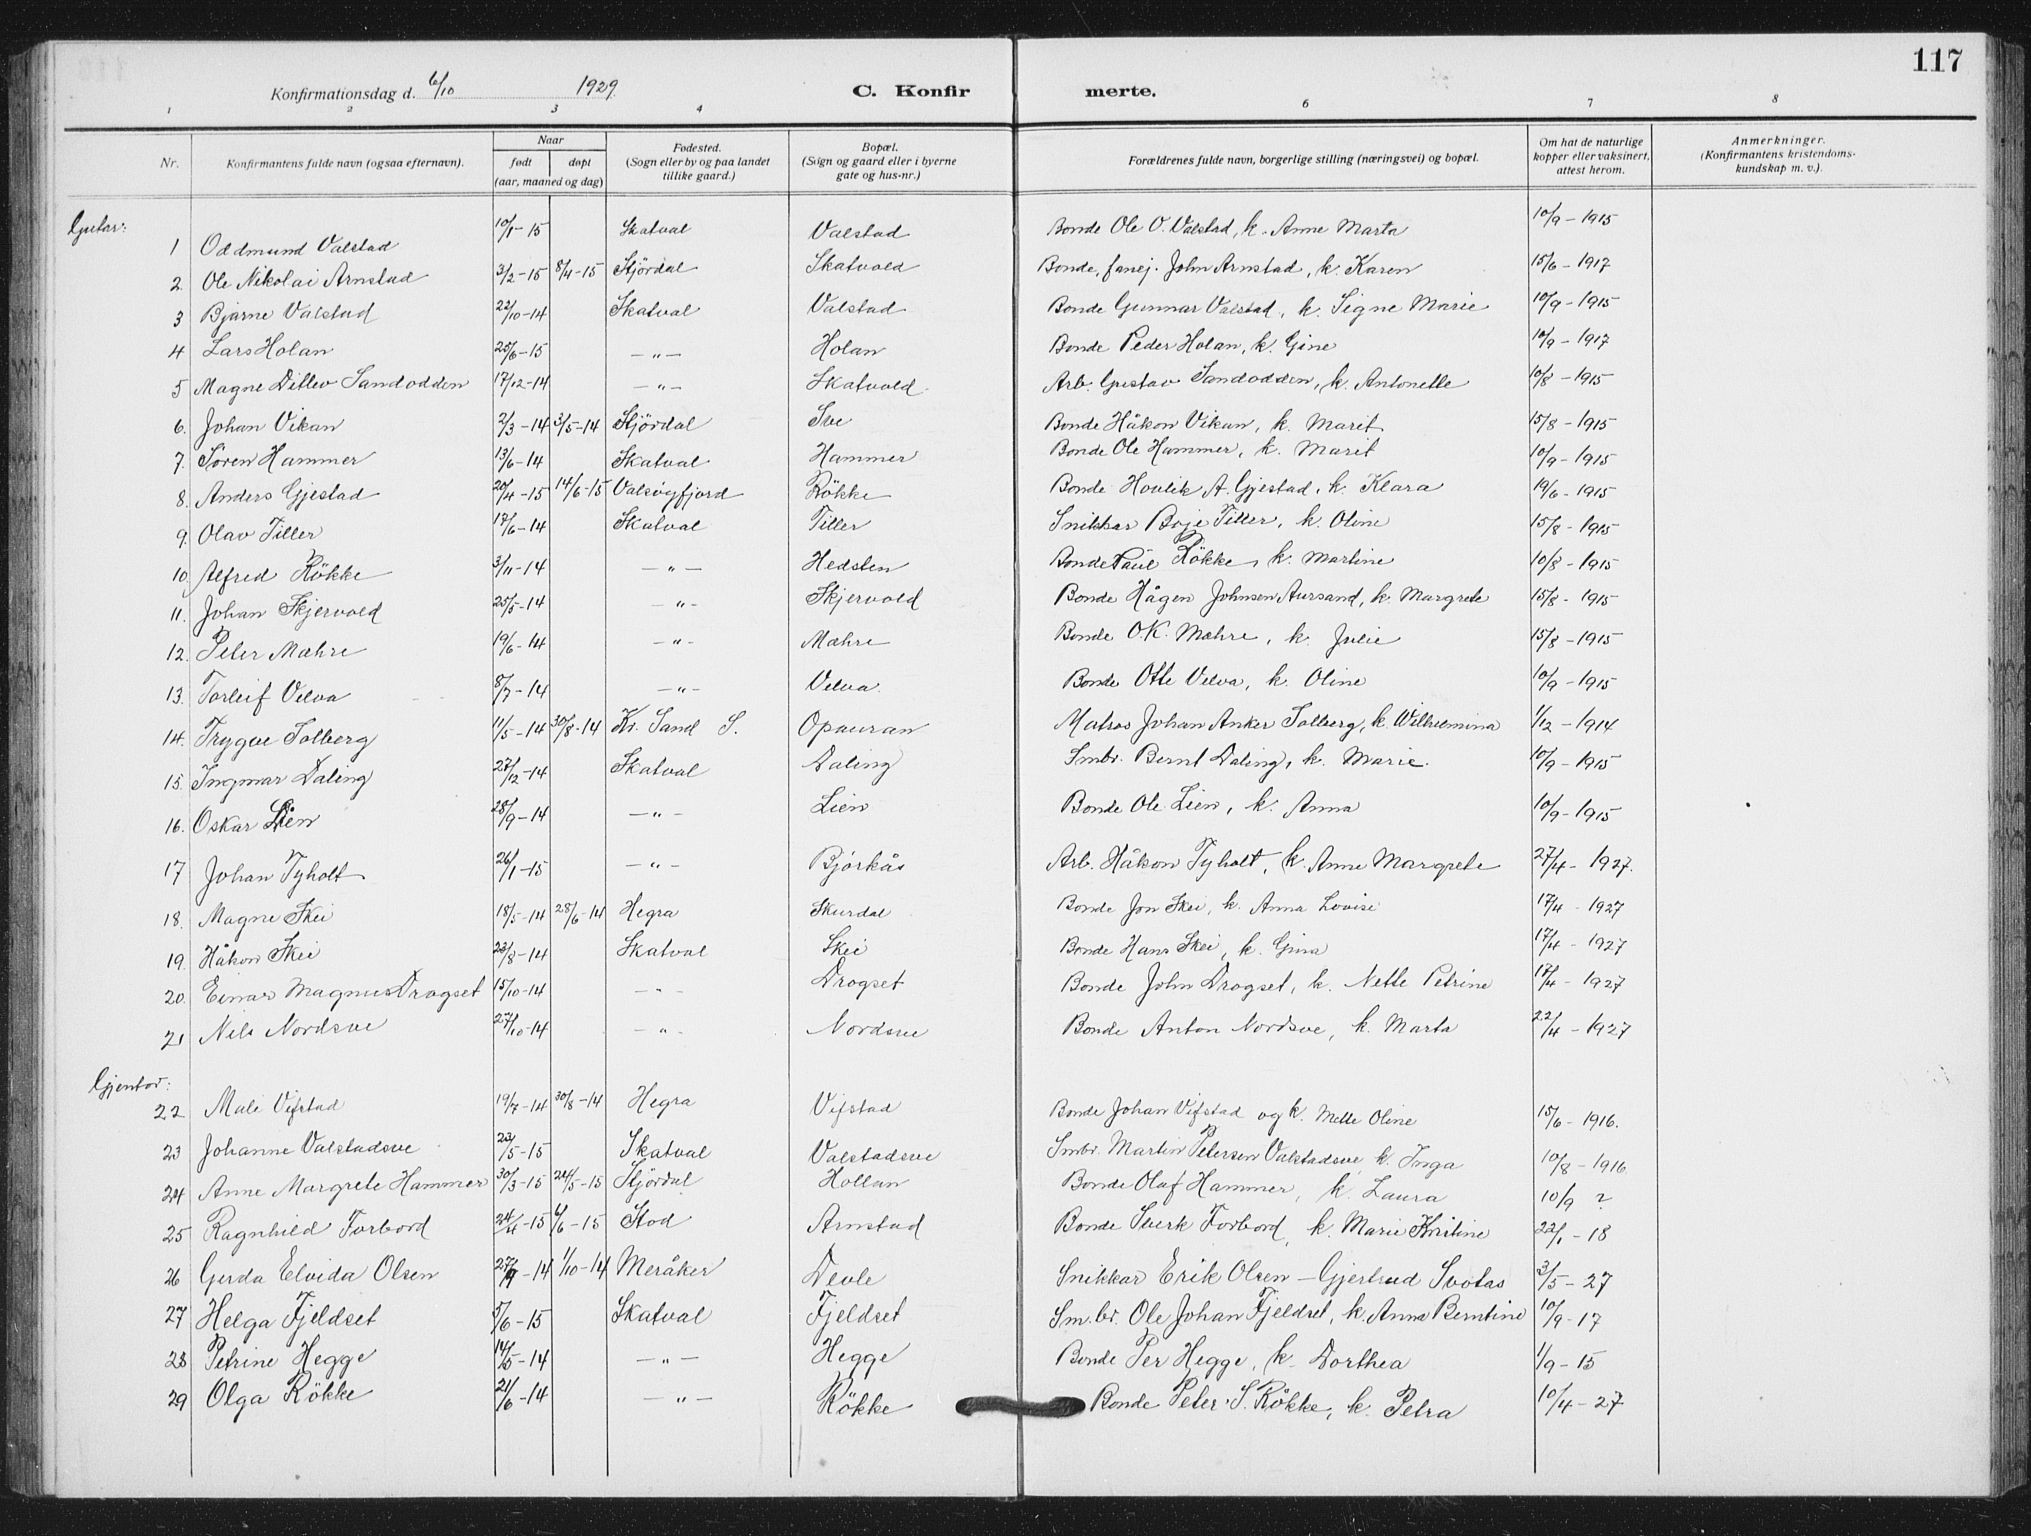 117
Konfirmationsdag d. 6/10 1929. C. Konfirmerte.
1 2 3 4 6 7 8
Nr. Konfirmantens fulde navn (ogsaa efternavn). Naar født døpt (aar, maaned og dag) Fødested. (Sogn eller by og paa landet tillike gaard.) Bopæl. (Sogn og gaard eller i byerne gate og hus-nr.) Forældrenes fulde navn, borgerlige stilling (næringsvei) og bopæl. Om hat de naturlige kopper eller vaksinert, attest herom. Anmerkninger. (Konfirmantens kristendomskundskap m. v.).
Gutar:
1 Oddmund Valstad 10/1-15 Skatval Valstad Bonde Ole O. Valstad, k. Anne Marta 10/9-1915
2. Ole Nikolai Arnstad 3/2-15 8/4-15 Stjørdal Skatvold Bonde, fanej. John Arnstad, k. Karen 15/6-1917
3 Bjarne Valstad 22/10-14 Skatval Valstad Bonde Gunnar Valstad, k. Signe Marie 10/9-1915
4 Lars Holan 25/6-15 -"- Holan Bonde Peder Holan, k. Gine 10/9-1917
5 Magne Ditlev Sandodden 17/12-14 -"- Skatvold Arb. Gustav Sandodden, k. Antonette 10/8-1915
6. Johan Vikan 2/3-14 3/5-14 Stjördal Sve Bonde Håkon Vikan, k. Marit 15/8-1915
7. Søren Hammer 13/6-14 Skatval Hammer Bonde Ole Hammer, k. Marit 10/9-1915
8. Anders Gjestad 20/4-15 14/6-15 Valsöyfjord Rökke Bonde Hovlik A. Gjestad, k. Klara 19/6-1915
9. Olav Tiller 17/6-14 Skatval Tiller Snikkar Boje Tiller, k. Oline 15/8-1915
10. Alfred Rökke 3/11-14 -"- Hedsten Bonde Paul Rökke, k. Martine 10/8-1915
11. Johan Skjervold 25/5-14 -"- Skjervold Bonde Hågen Johnsen Aursand, k. Margrete 15/8-1915
12. Peter Mæhre 19/6-14 -"- Mæhre Bonde O.K. Mæhre, k. Julie 15/8-1915
13. Torleif Velva 8/7-14 -"- Velva. Bonde Otte Velva, k. Oline 10/9-1915
14. Trygve Solberg 11/5-14 30/8-14 Kr. Sand S. Opauran Matros Johan Anker Solberg, k. Wilhelmina 1/12-1914
15. Ingmar Daling 27/12-14 Skatval Daling Smbr. Bernt Daling, k. Marie. 10/9-1915
16. Oskar Lien 28/9-14 -"- Lien Bonde Ole Lien, k. Anna 10/9-1915
17 Johan Tyholt 26/1-15 -"- Bjørkås Arb. Håkon Tyholt, k. Anne Margrete 27/4-1927.
18. Magne Skei 18/5-14 28/6-14 Hegra Skurdal Bonde Jon Skei, k. Anna Lovise 17/4-1927
19. Håkon Skei 23/8-14 Skatval Skei Bonde Hans Skei, k. Gina 17/4-1927
20. Einar Magnus Drogset 15/10-14 -"- Drogset Bonde John Drogset, k. Nette Petrine 17/4-1927
21 Nils Nordsve 27/10-14 -"- Nordsve Bonde Anton Nordsve, k. Marta 22/4-1927
Gjentor:
22 Mali Vifstad 19/7-14 30/8-14 Hegra Vifstad Bonde Johan Vifstad og k. Mette Oline 15/6-1916.
23 Johanne Valstadsve 23/5-15 Skatval Valstadsve Smbr. Martin Petersen Valstadsve, k. Inga 10/8-1916
24 Anne Margrete Hammer 30/3-15 24/5-15 Stjördal Hollan Bonde Olaf Hammer, k. Laura 10/9 ?
25 Ragnhild Forbord 24/4-15 6/6-15 Stod Arnstad Bonde Sverk Forbord, k. Marie Kristine 22/1-18
26 Gerda Elvida Olsen 27/9-14 1/10-14 Meråker Devle Snikkar Erik Olsen - Gjertrud Svotas 3/5-27
27 Helga Fjeldset 5/6-15 Skatval Fjeldset Sm.br. Ole Johan Fjeldset, k. Anna Berntine 10/9-17
28 Petrine Hegge 14/5-14 -"- Hegge Bonde Per Hegge, k. Dorthea 1/9-15
29 Olga Rökke 21/6-14 -"- Rökke Bonde Peter S. Rökke, k. Petra 10/4-27